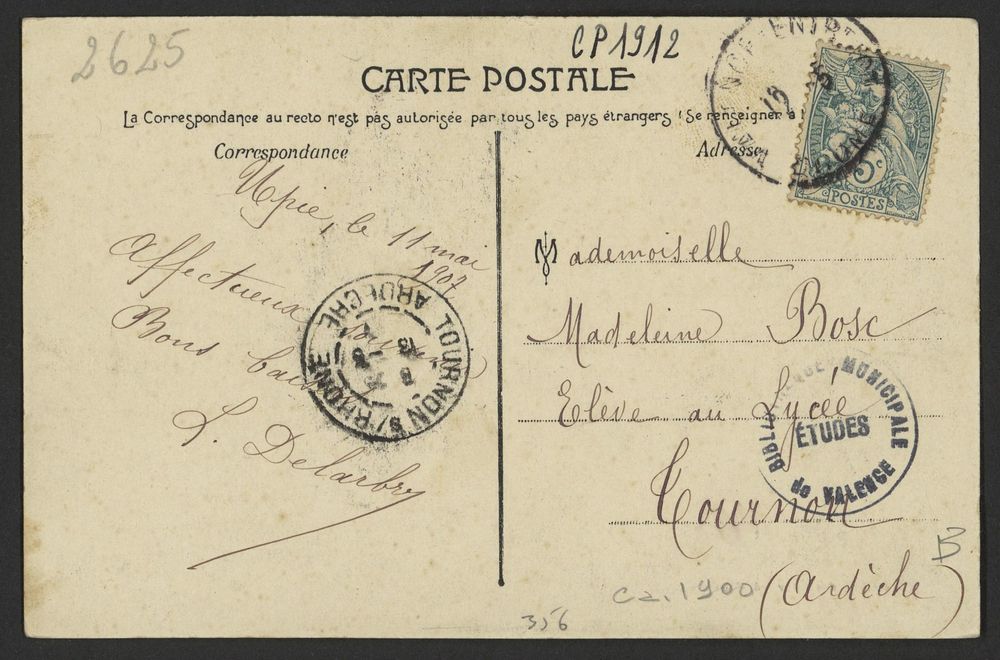 2625
CP1912
CARTE POSTALE
La Correspondance au recto n'est pas autorisée par tous les pays étrangers (Se renseigner à
Correspondance
Upie, le 11 mai
1907
Affectueux
Bons
L. Delarbry
TOURNON S/RHONE
ARDECHE
Adresse
POSTES
5c
Mademoiselle
Madeleine Bosc
Elève au Lycée
Tournon
(Ardèche)
BIBLIOTHEQUE MUNICIPALE
ÉTUDES
de VALENCE
B
Ca. 1900
356